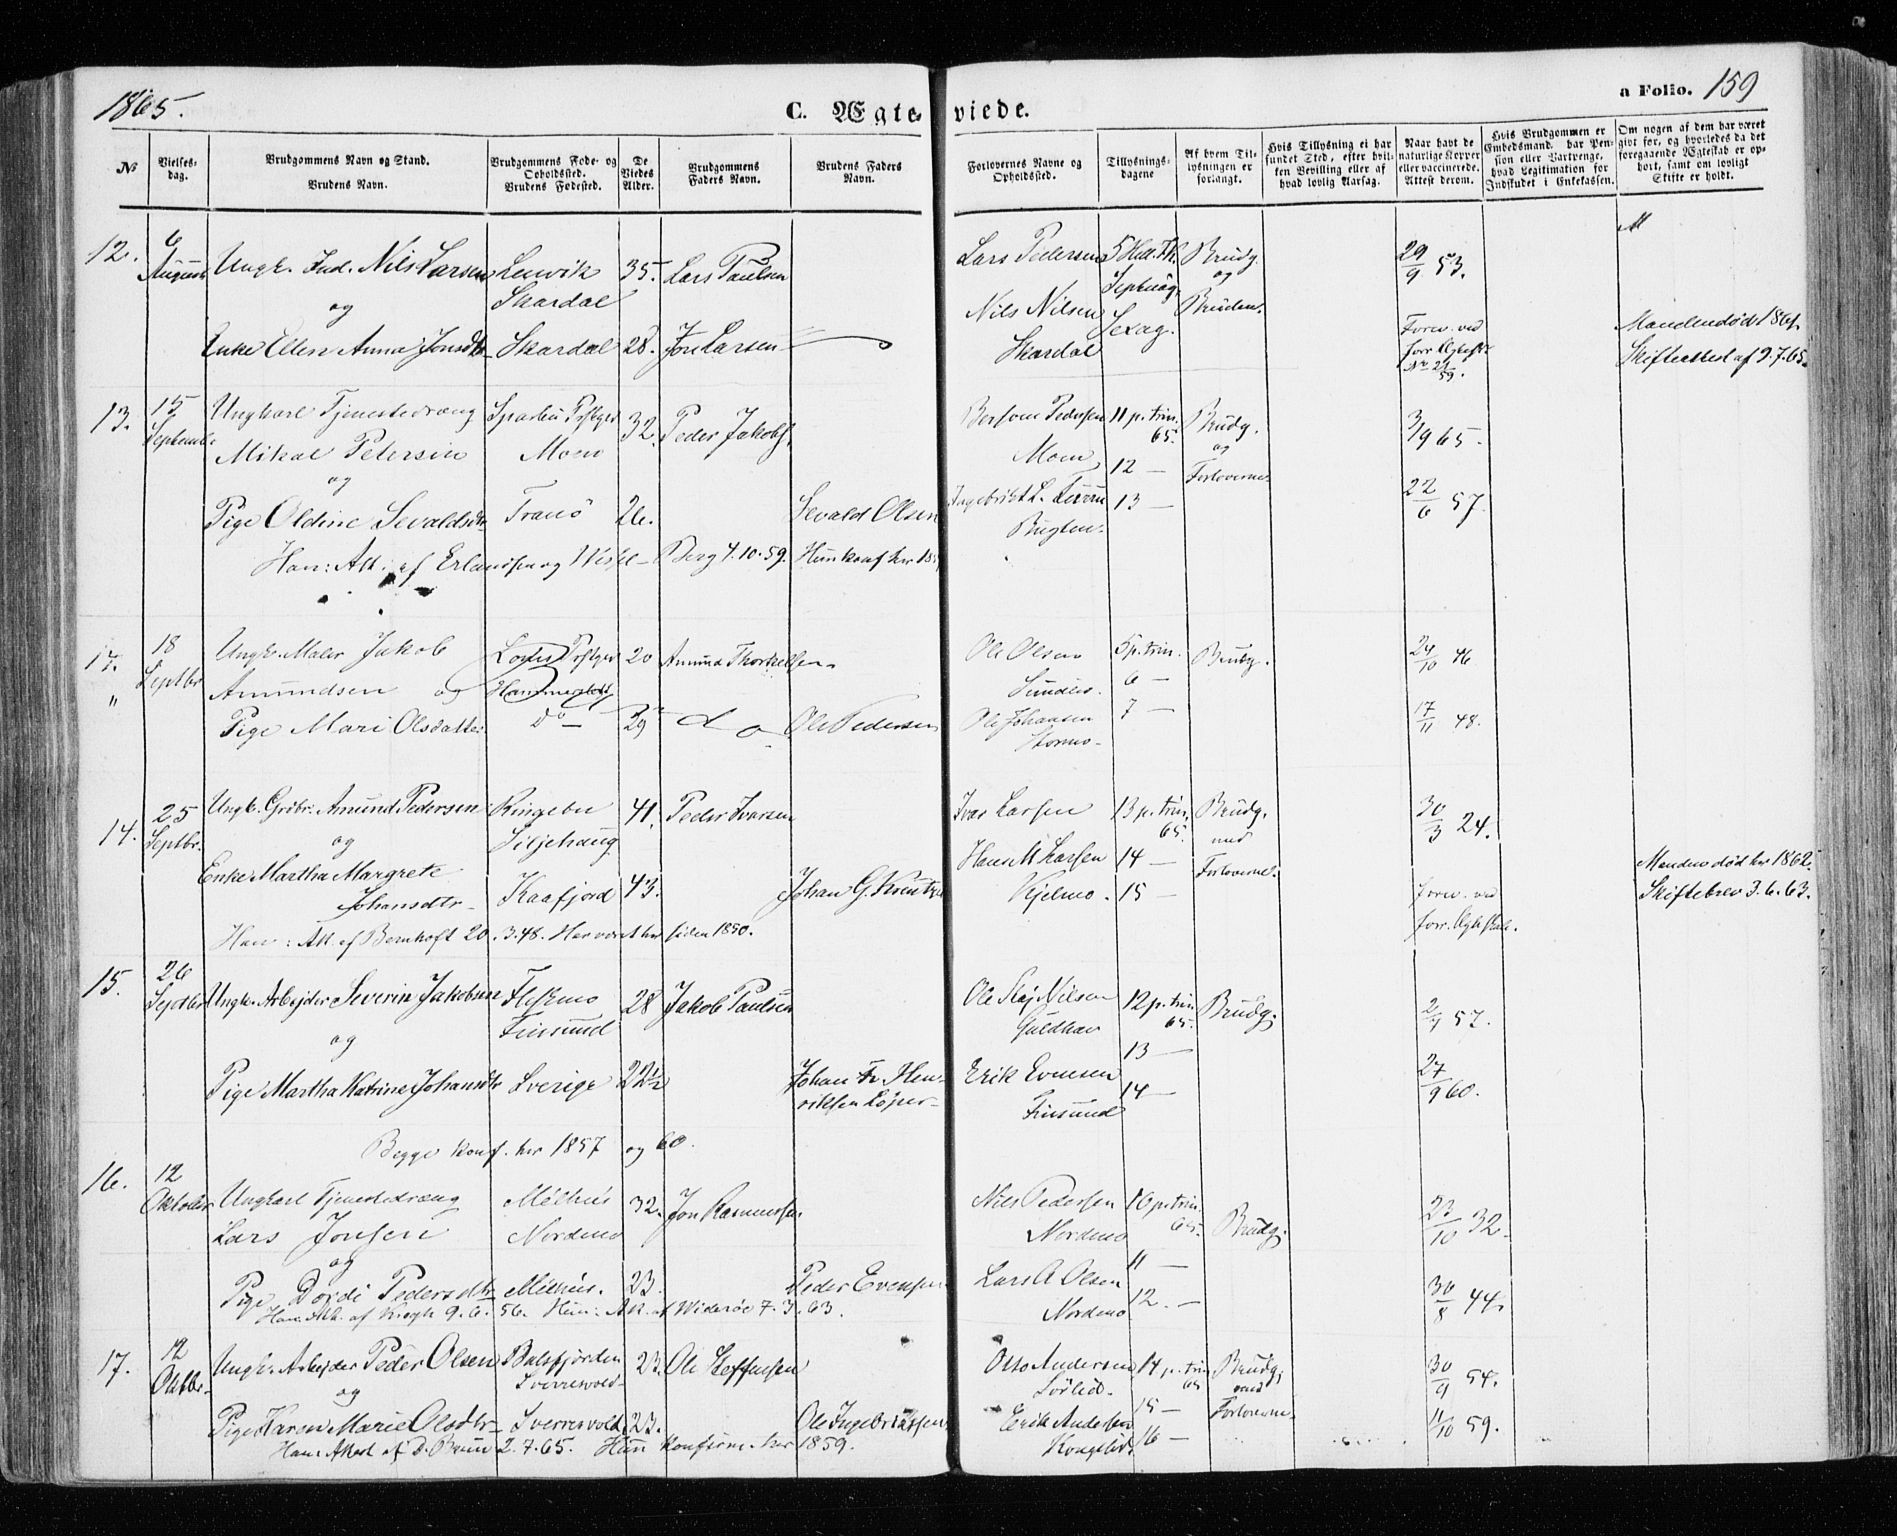 1865.
C. Ægte-
viede.
a Folio. 159
No
Vielses-
dag.
Brudgommens Navn og Stand.
Brudens Navn.
Brudgommens Føde- og
Opholdssted.
Brudens Fødested.
De
Viedes
Alder.
Brudgommens
Faders Navn.
Brudens Faders
Navn.
Forlovernes Navne og
Opholdssted.
Tillysnings-
dagene
Af hvem Til-
lysningen er
forlangt.
Hvis Tillysning ei har
fundet Sted, efter hvil-
ken Bevilling eller af
hvad lovlig Aarsag.
Naar havt de
naturlige Kopper
eller vaccinerede.
Attest derom.
Hvis Brudgommen er
Embedsmand, har Pen-
sion eller Vartpenge,
hvad Legitimation for
Indskudet i Enkekassen.
Om nogen af dem har været
gift før, og hvorledes da det
foregaaende Ægteskab er op-
hørt, samt om lovligt
Skifte er holdt.
12. 6 August Ungk. Ind. Nils Larsen Lenvik Skardal 35. Lars Paulsen
og
Enke Ellen Anna Jonsdtr Skardal 28. Jon Larsen
Lars Pedersen
Nils Nilsen
Skardal
5 Hell. Th.
Septuag.
Sexag.
Brudg.
og
Bruden.
29/9 53.
Forev. ved
forr. Ægtesk.
Manden død 1861.
Skifteattest af 9.7.65.
13. 15 Septembr Ungkarl Tjenestedræng
Mikal Petersen
Moen
32. Peder Jakobs.
og
Pige Oldine Sevaldsdtr Tranö 26. Sevald Olsen
Han: Att. af Erlandsen og Wessel-Berg 4.10.59. Hun konf. her
Bersvein Pedersen
Moen
Ingebrikt L.
Bugten.
11 p. trin. 65.
12 —
13 —
Brudg.
og
Forloverne
3/9 65.
22/6 57.
18 Septbr Ungk. Maler Jakob
Amundsen og
20 Amund Thorkelsen
Pige Mari Olsdatter do 29 Ole Pedersen
Ole Olsen
Sundlis.
Ole Johansen
Stormo.
5 p. trin.
6 —
7 —
Brudg.
24/10 46
17/11 48.
14. 25 Septbr. Ungk. Grdbr. Amund Pedersen Ringebu Siljehaug 41. Peder Ivarsen
og
Enke Martha Margrete
Johansdtr. Kaafjord 43. Johan G. Kreutzer
Han: Att. af Bernhoft 20.3.48. Har været her siden 1850.
Ivar Larsen
Hans M. Larsen
Kjelmo.
13 p. trin. 65.
14 —
15 —
Brudg.
med
Forloverne.
30/3 24.
forev. ved
forr. Ægteskab.
Manden død her 1862.
Skiftebrev 3.6.63.
15. 26 Septbr Ungk. Arbejder Severin Jakobsen Fleskmo
Finsund 28 Jakob Paulsen
og
Pige Martha Katrine Johansdtr Sverige 22½ Johan Fr. Hen-
riksen Löper
Begge konf. her 1857 og 60.
Ole Kaj Nilsen
Guldhav
Erik Evensen
Finsund
12 p. trin 65.
13 —
14 —
Brudg.
57.
27/9 60.
16. 12 Oktober Ungkarl Tjenestedræng
Lars Jonsen
Melhus
Nordmo
32. Jon Rasmussen
og
Pige Dordi Pedersdtr Melhus. 23. Peder Evensen
Han: Att. af Krogh 9.6.56. Hun: Att. af Wideröe 7.3.63.
Nils Pedersen
Nordmo
Lars A Olsen
Nordmo
10 p. trin. 65.
11 —
12. —
Brudg.
23/10 32.
30/8 44.
17. 12 Oktbr. Ungk. Arbejder Peder Olsen Balsfjorden
Sverresvold 23. Ole Steffensen
og
Pige Karen Marie Olsdtr Sverresvold 23. Ole Ingebriktsen
Han: Attest af D. Bruun 2.7.65. Hun konfirm. her 1859.
Otto Andersen
Sørlid.
Erik Andersen
Kongslid.
14 p. trin 65
15 —
16 —
Brudg.
med
Forloverne.
30/9 54.
11/10 59.